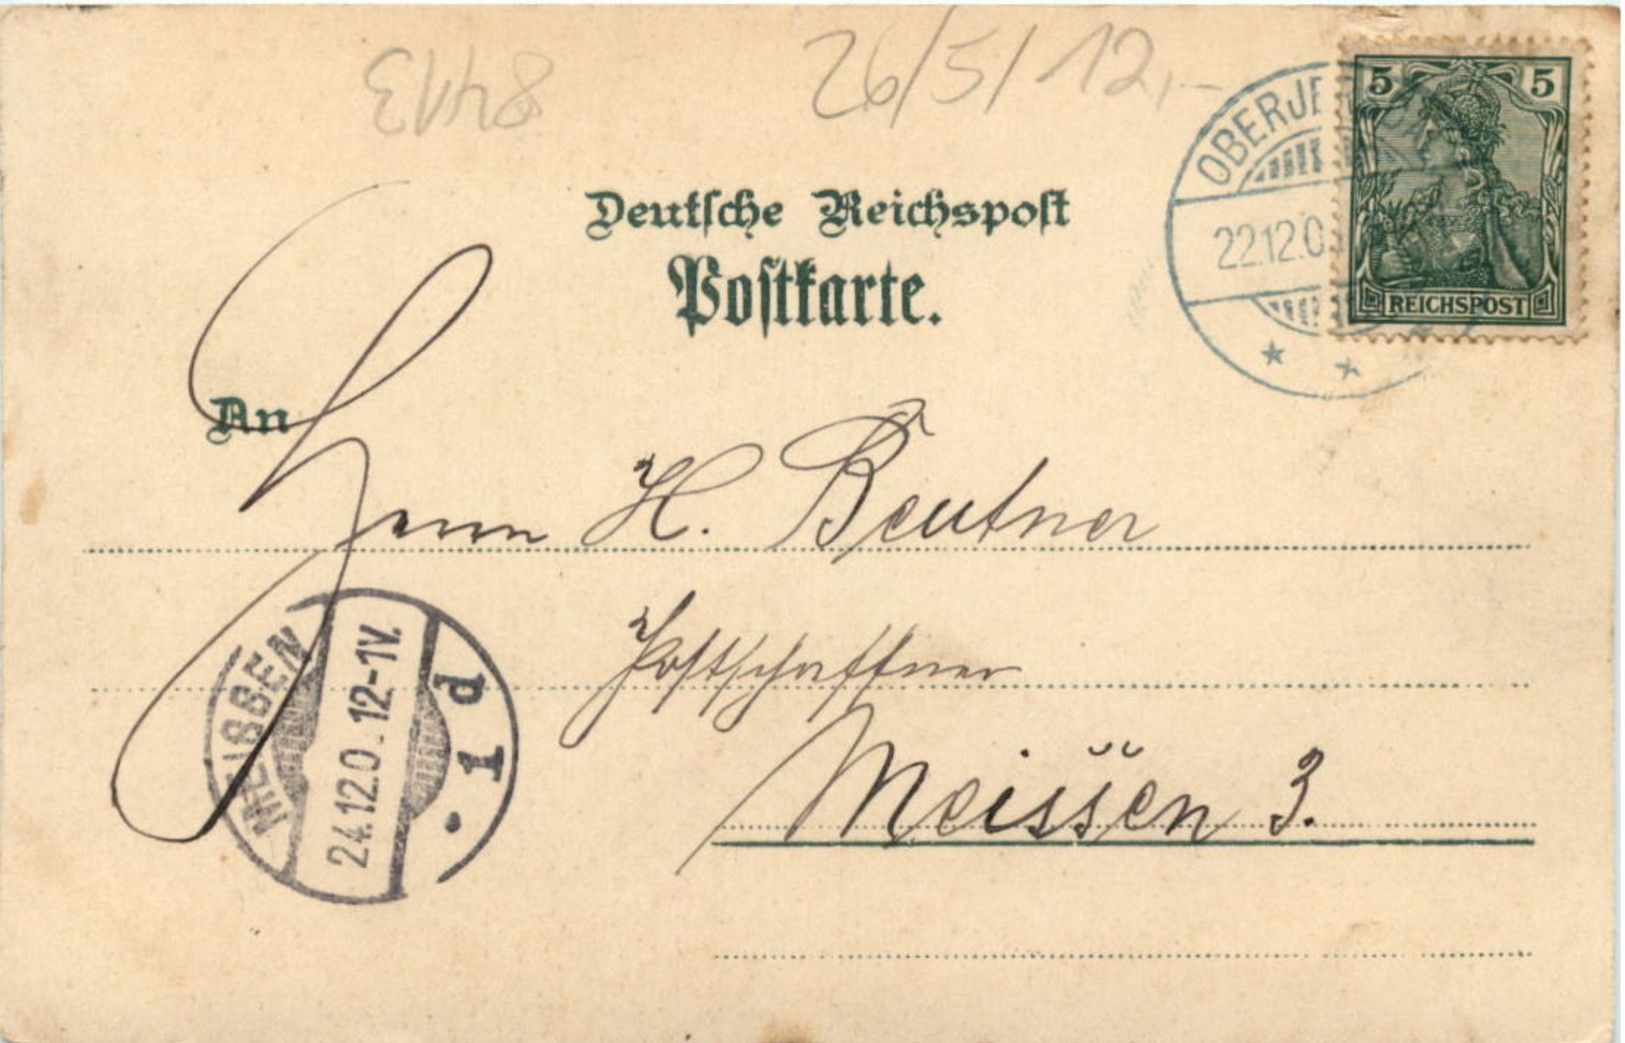 8413
26/5/12,-
5 5
REICHSPOST
OBERJE
22.12.0
Deutsche Reichspost
Postkarte.
An
Herrn H. Beutner
Postschaffner
Meissen 3.
MEISSEN
24.12.0. 12-1V.
1d